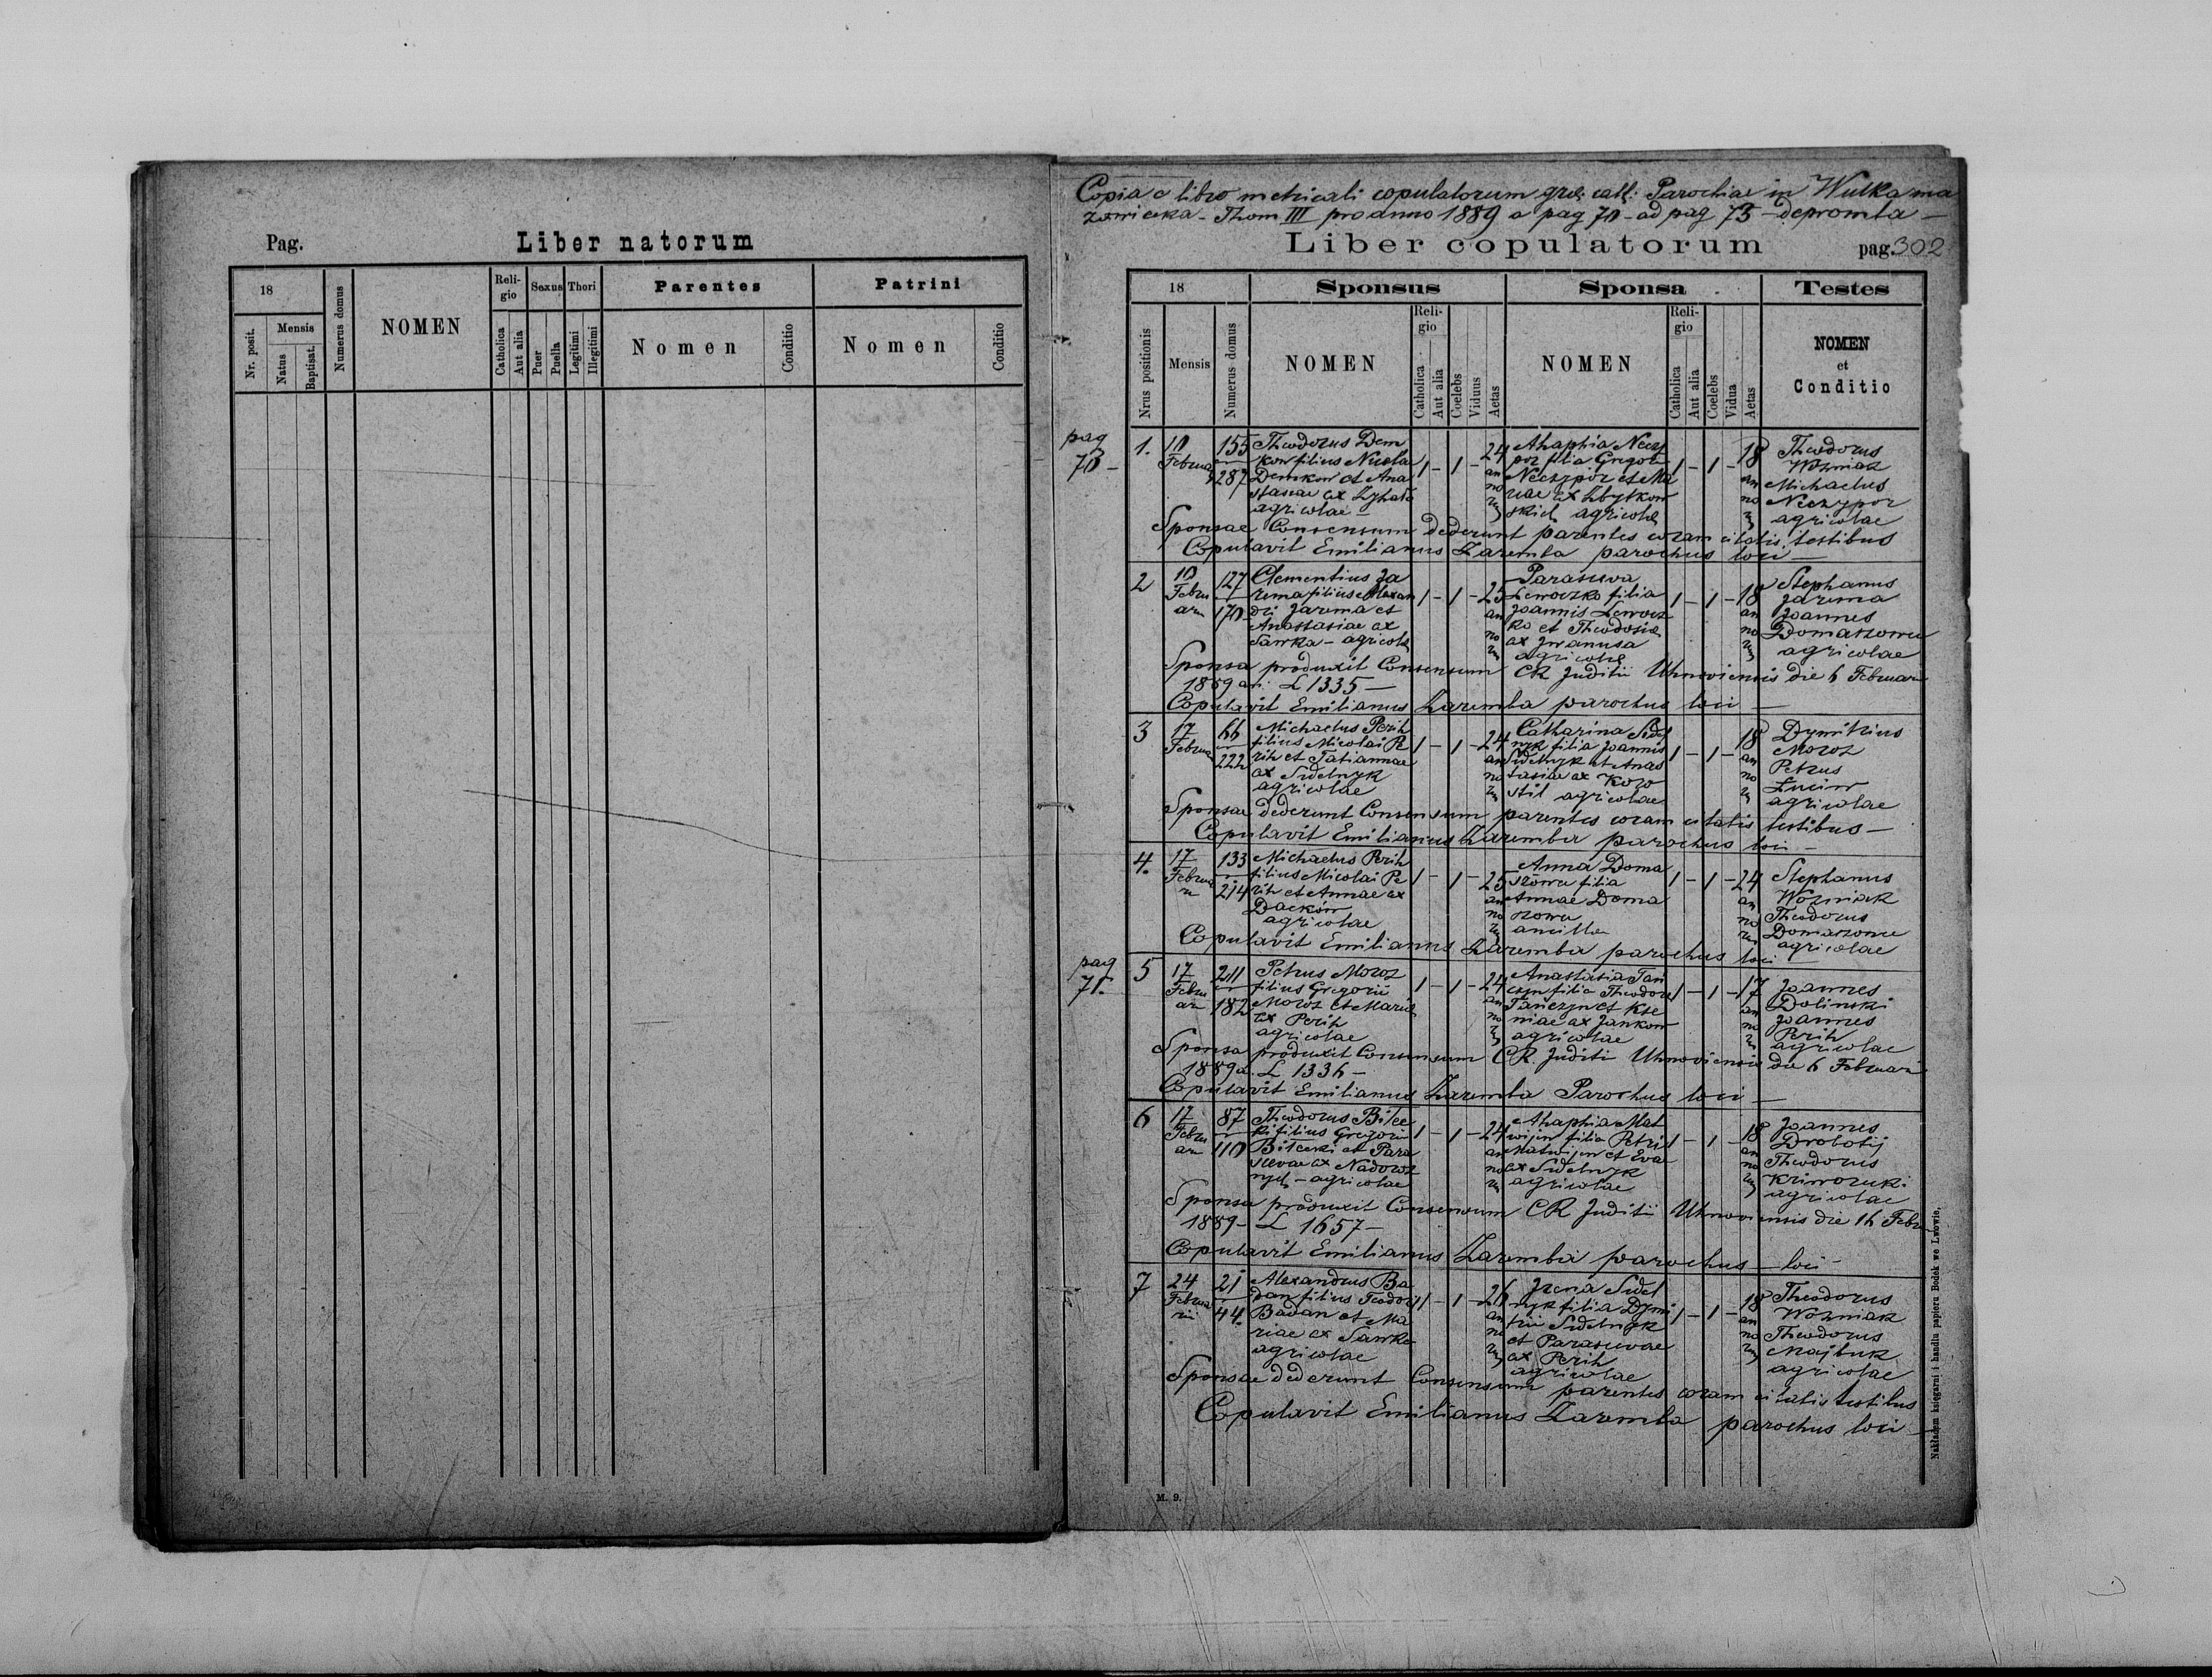 Pag.
Liber natorum
18
Numerus domus
NOMEN
Reli-
gio
Sexus
Thori
Parentes
Patrini
Nr. posit.
Mensis
Natus
Baptisat.
Catholica
Aut alia
Puer
Puella
Legitimi
Illegitimi
Nomen
Conditio
Nomen
Conditio
Copia e libro metricali copulatorum gr. cath: Parochiae in Wulka ma
zowiecka - Thom III pro anno 1889 a pag 70 - ad pag 73 - depromta -
Liber copulatorum
pag. 302
18
Sponsus
Sponsa
Testes
Nrus positionis
Mensis
Numerus domus
NOMEN
Reli-
gio
Catholica
Aut alia
Coelebs
Viduus
Aetas
NOMEN
Reli-
gio
Catholica
Aut alia
Coelebs
Vidua
Aetas
NOMEN
et
Conditio
pag
70 -
1.
10
Februa
155
287
Theodorus Dem
kow filius Nicolai
Demkow et Ana
stasiae ex
agricolae -
1 - 1 -
24
an
no
rum
Ahaphia Neczy
por filia Gregorii
Neczypor et Ma
riae ex Zbytkow
skich agricolae
1 - 1 -
18
an
no
rum
Theodorus
Wozniak
Michaelus
Neczypor
agricolae
Sponsae Consensum dederunt parentes coram citatis testibus
Copulavit Emilianus Zaremba parochus loci -
2
10
Febru
arii
127
170
Clementius Ja
rema filius Alexan
dri Jarema et
Anastasiae ex
Sawka - agricolae
1 - 1 -
25
an
no
rum
Parasceva
Lewoczko filia
Joannis Lewocz
ko et Theodosiae
ex Iwanusa
agricolae
1 - 1 -
18
an
no
rum
Stephanus
Jarema
Joannes
Domaszowu
agricolae
Sponsa produxit Consensum CR Juditii Uhnoviensis die 6 Februarii
1889 an: L 1335 -
Copulavit Emilianus Zaremba parochus loci -
3
17
Februa
66
222
Michaelus Perih
filius Nicolai Pe
rih et Tatiannae
ex Sidelnyk
agricolae
1 - 1 -
24
an
no
rum
Catharina Sidel
nyk filia Joannis
Sidelnyk et Anas
tasiae ex Kowo
stil agricolae
1 - 1 -
18
an
no
rum
Dymitrius
Moroz
Petrus
Luciw
agricolae
Sponsae dederunt Consensum parentes coram citatis testibus -
Copulavit Emilianus Zaremba parochus loci -
4.
17
Februa
rii
133
214
Michaelus Perih
filius Nicolai Pe
rih et Annae ex
Dacków
agricolae
1 - 1 -
25
an
no
rum
Anna Doma
szowu filia
Annae Doma
szowu
ancilla
1 - 1 -
24
an
no
rum
Stephanus
Wozniak
Theodorus
Domaszowu
agricolae
Copulavit Emilianus Zaremba parochus loci
pag
71.
5
17
Febru
arii
211
182
Petrus Moroz
filius Gregorii
Moroz et Mariae
ex Perih
agricolae
1 - 1 -
24
an
no
rum
Anastasia Tań
czyn filia Theodori
Tańczyn et Kse
niae ex Jankow
agricolae
1 - 1 -
17
an
no
rum
Joannes
Dolinski
Joannes
Perih
agricolae
Sponsa produxit Consensum CR. Juditii Uhnoviensis die 6 Februarii
1889 a. L 1336 -
Copulavit Emilianus Zaremba Parochus loci -
6
17
Febru
arii
87
110
Theodorus Bilec
ki filius Gregorii
Bilecki et Para
scevae ex Nadoroz
nych - agricolae
1 - 1 -
24
an
no
rum
Ahaphia Mat
wijiw filia Petri
Matwijiw et Evae
ex Sidelnyk
agricolae
1 - 1 -
18
an
no
rum
Joannes
Drobotij
Theodorus
Kriworuki
agricolae
Sponsa produxit Consensum CR Juditii Uhnoviensis die 16 Febru
1889 - L 1657 -
Copulavit Emilianus Zaremba parochus - loci -
7
24
Februa
rii
21
44.
Alexandrus Ba
dan filius Teodori
Badan et Ma
riae ex Sawka
agricolae
1 - 1 -
26
an
no
rum
Irena Sidel
nyk filia Dymi
trii Sidelnyk
et Parascevae
ex Perih
agricolae
1 - 1 -
18
an
no
rum
Theodorus
Wozniak
Theodorus
Majbuk
agricolae
Sponsae dederunt Consensum parentes coram citatis testibus
Copulavit Emilianus Zaremba parochus loci -
M. 9.
Nakładem księgarni i handlu papieru Bodek we Lwowie.